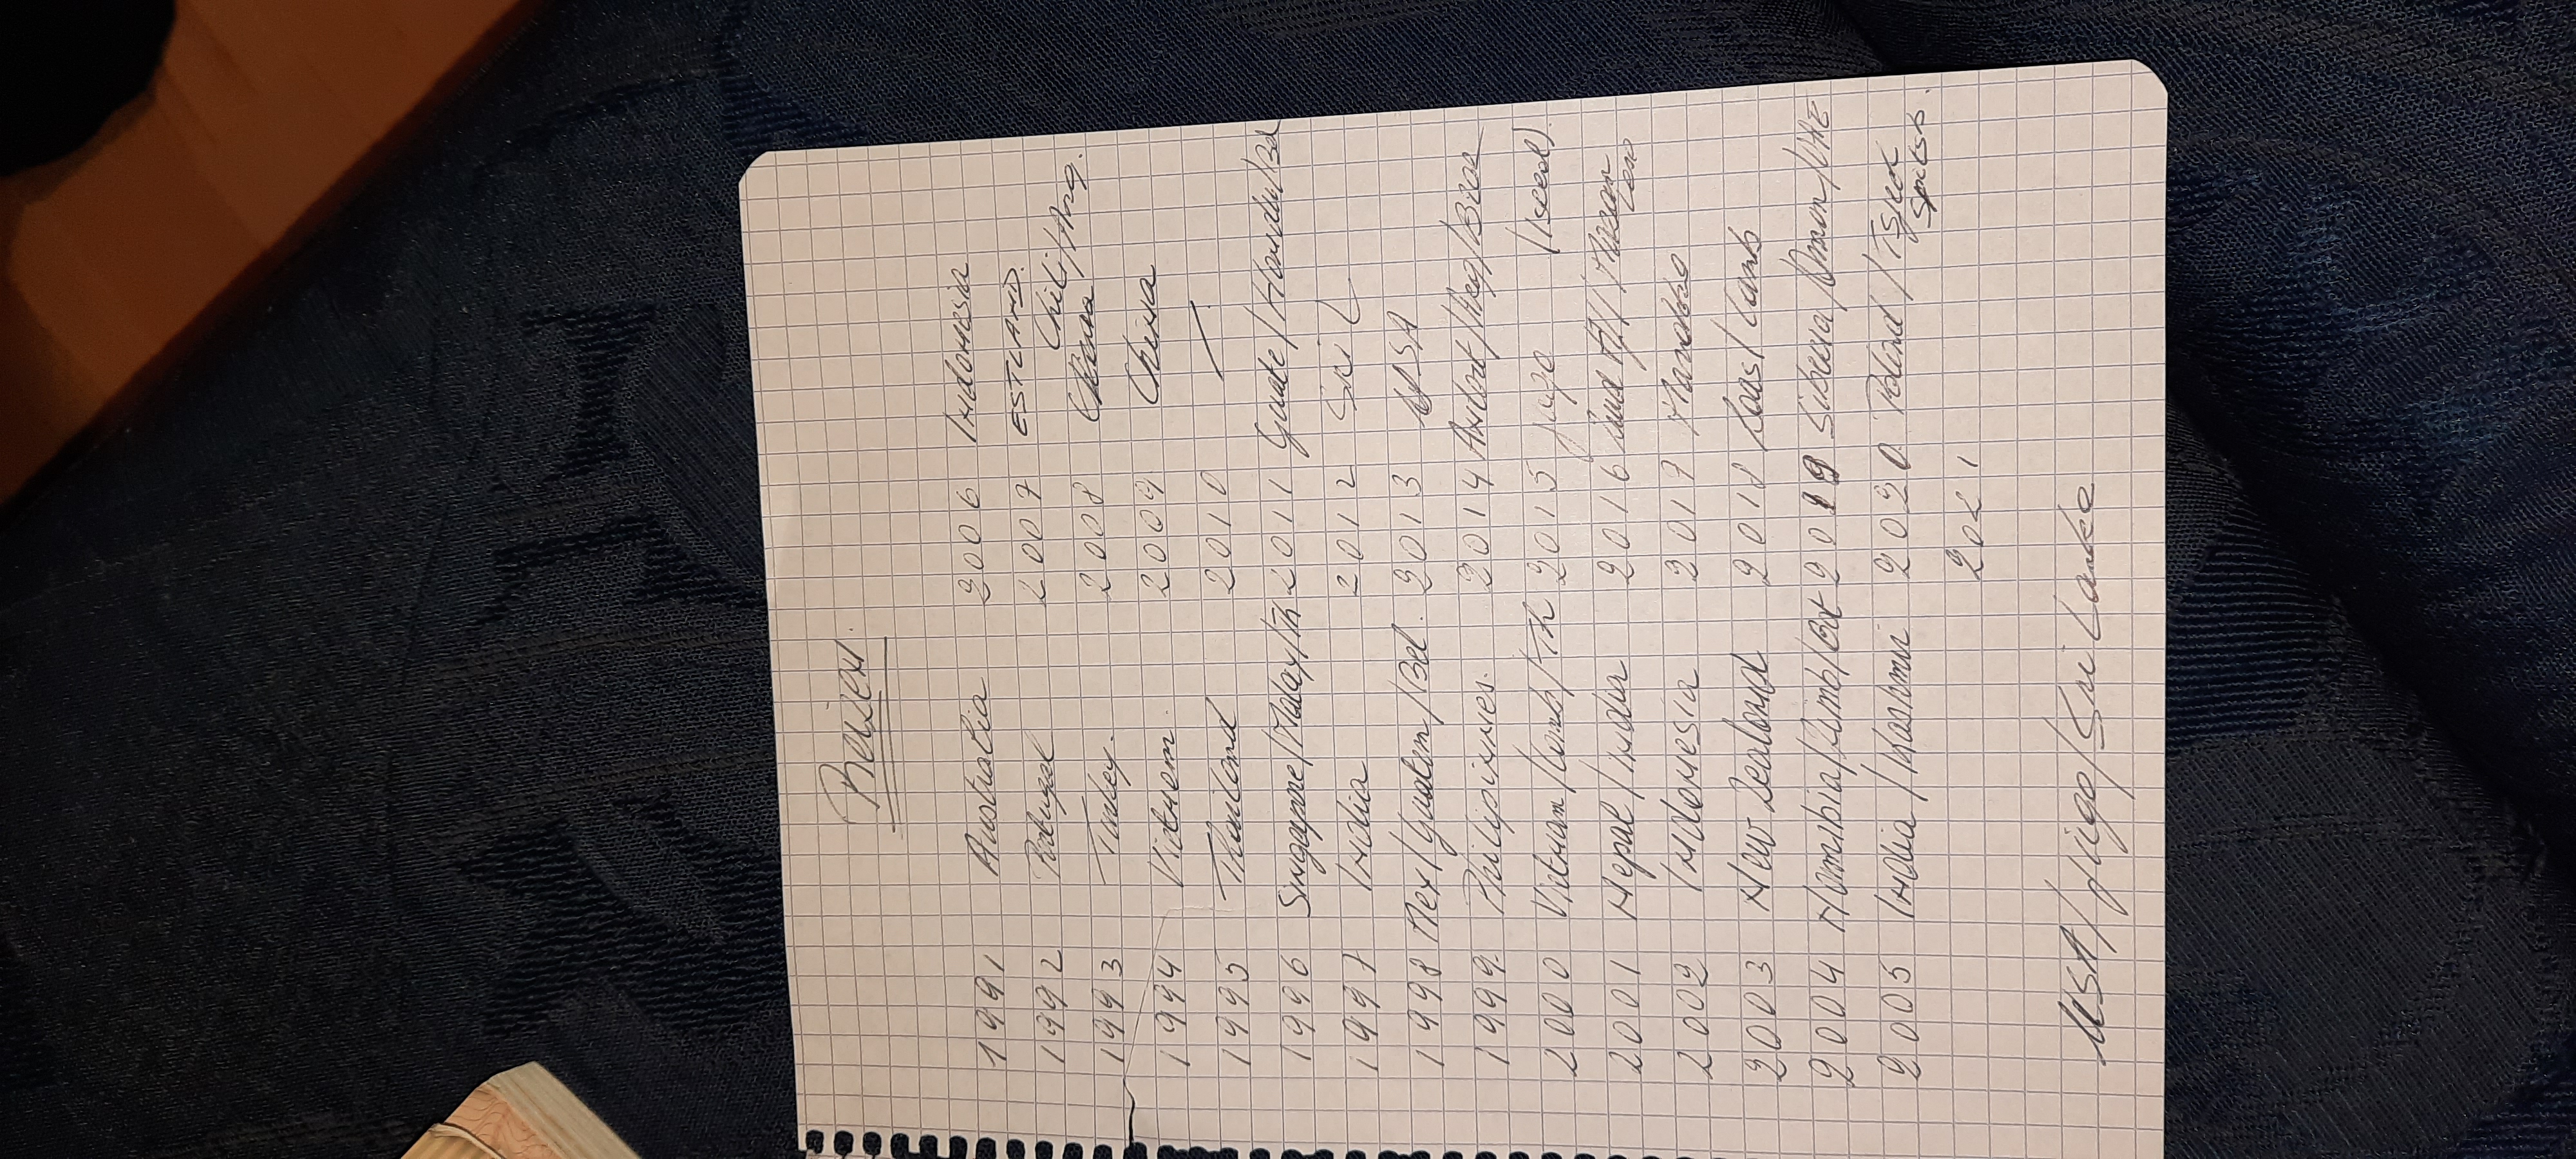 Reizen.
1991 Australia 2006 Indonesia
1992 Portugal 2007 ESTLAND.
1993 Turkey. 2008 China Chili/Arg.
1994 Vietnam. 2009 China
1995 Thailand 2010 —
1996 Singapore/Malay/Th 2011 Guate/Hondu/Bel
1997 India 2012 Sri L
1998 Mex/Guatem/Bel. 2013 USA
1999 Philipinnes. 2014
2000 Vietnam/Camb/Th 2015
2001 Nepal/India 2016
2002 Indonesia 2017
2003 New Sealand 2018 Laas/Camb
2004 Namibia/Zimb/Bot 2019 Siberia/Oman/UAE
2005 India/Kashmir 2020 Poland/
Spitsb.
2021
USA/ /Sri Lanka